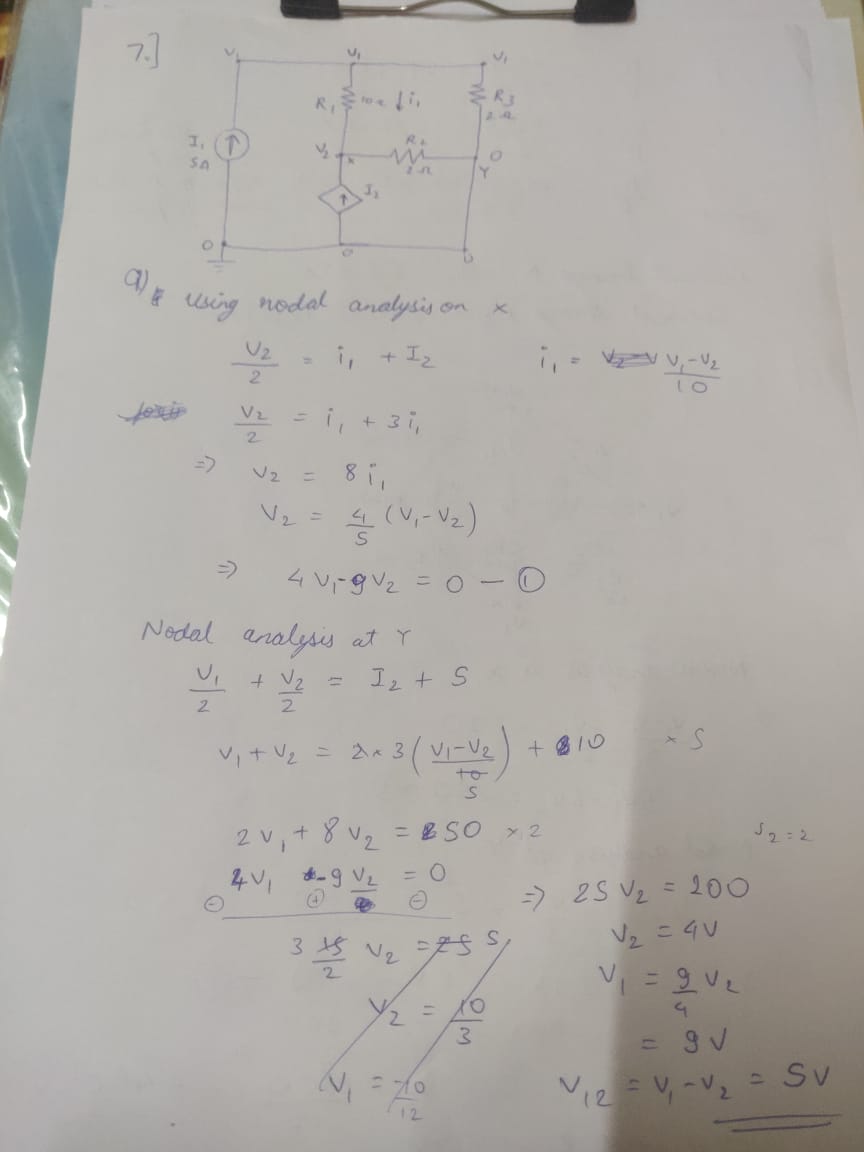 7.]
V₁ V₁ V₁
R₁ 10Ω ↓i₁ R₃ 2Ω
I₁ 5A
V₂ x R₂ 2Ω 0 Y
I₂
0 0 0
a) Using nodal analysis on x
V₂/2 = i₁ + I₂ i₁ = (V₁-V₂)/10
V₂/2 = i₁ + 3i₁
=> V₂ = 8i₁
V₂ = 4/5 (V₁-V₂)
=> 4V₁-9V₂ = 0 — ①
Nodal analysis at Y
V₁/2 + V₂/2 = I₂ + 5
V₁ + V₂ = 2×3((V₁-V₂)/10 5) + 10 × 5
2V₁ + 8V₂ = 50 × 2
4V₁ -9V₂ = 0
⊖ ⊕ ⊖
3 15/2 V₂ = 25 5
V₂ = 10/3
V₁ = 10/12
5₂ = 2
=> 25V₂ = 200
V₂ = 4V
V₁ = 9/4 V₂
= 9V
V₁₂ = V₁-V₂ = 5V